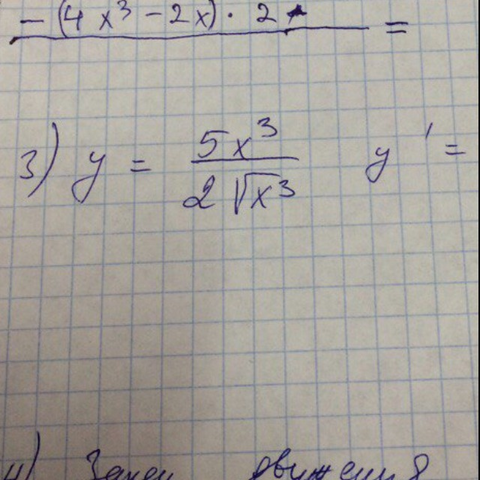 -(4x³ - 2x) · 2 =
3) y = 5x³ / 2√x³ y' =
4) Закон движения